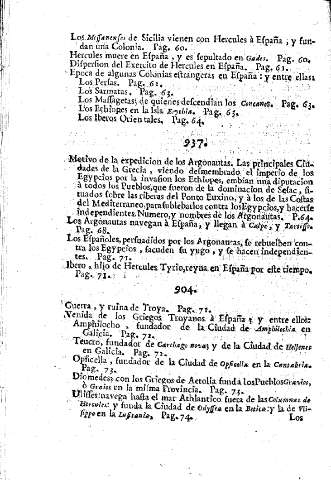 Los Messanenses de Sicilia vienen con Hercules à España, y fun-
dan una Colonia. Pag. 60.
Hercules muere en España, y es sepultado en Gades. Pag. 60.
Dispersion del Exercito de Hercules en España. Pag. 61.
Epoca de algunas Colonias estrangeras en España: y entre ellas
Los Persas. Pag. 61.
Los Sarmatas. Pag. 63.
Los Massagetas; de quienes descendian los Concanos. Pag. 63.
Los Ethiopes en la Isla Erythia. Pag. 63.
Los Iberos Orientales. Pag. 64.
937.
Motivo de la expedicion de los Argonautas. Las principales Ciu-
dades de la Grecia, viendo desmembrado el imperio de los
Egypcios por la invasion los Ethiopes, embian una diputacion
à todos los Pueblos, que fueron de la dominacion de Sesac, si-
tuados sobre las riberas del Ponto Euxino, y à los de las Costas
del Mediterraneo, para sublebarlos contra los Egypcios, y hacerse
independientes. Numero, y nombres de los Argonautas. P. 64.
Los Argonautas navegan à España, y llegan à Calpe, y Tartesso.
Pag. 68.
Los Españoles, persuadidos por los Argonautas, se rebuelben con-
tra los Egypcios, sacuden su yugo, y se hacen independien-
tes. Pag. 71.
Ibero, hijo de Hercules Tyrio, reyna en España por este tiempo.
Pag. 71.
904.
Guerra, y ruina de Troya. Pag. 71.
Venida de los Griegos Troyanos à España; y entre ellos
Amphilocho, fundador de la Ciudad de Amphilochia en
Galicia. Pag. 72.
Teucro, fundador de Carthago nova; y de la Ciudad de Hellenes
en Galicia. Pag. 72.
Opsicella, fundador de la Ciudad de Opsicella en la Cantabria.
Pag. 73.
Diomedes con los Griegos de Aetolia funda los Pueblos Gravios,
ò Graios en la misma Provincia. Pag. 73.
Ulisses navega hasta el mar Athlantico fuera de las Columnas de
Hercules: y funda la Ciudad de Odyssea en la Betica: y la de Uli-
sippo en la Lusitania. Pag. 74.
Los